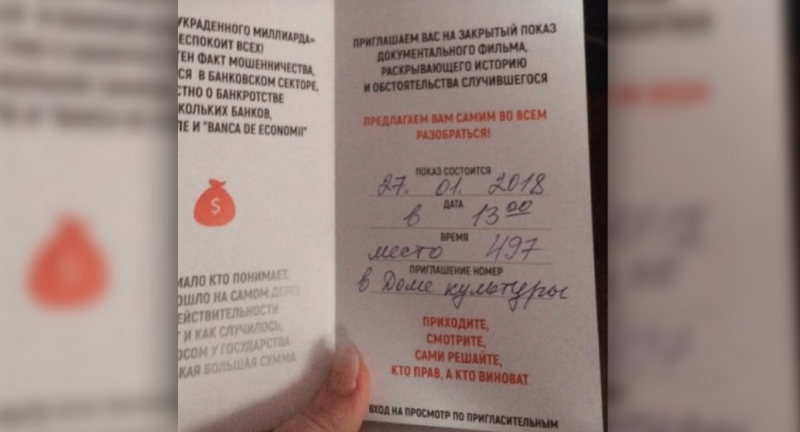 УКРАДЕННОГО МИЛЛИАРДА»
ЕСПОКОИТ ВСЕХ!
ТЕН ФАКТ МОШЕННИЧЕСТВА,
СЯ В БАНКОВСКОМ СЕКТОРЕ,
СТНО О БАНКРОТСТВЕ
КОЛЬКИХ БАНКОВ,
ЛЕ И "BANCA DE ECONOMII"
$
МАЛО КТО ПОНИМАЕТ,
ОШЛО НА САМОМ ДЕЛЕ
ЕЙСТВИТЕЛЬНОСТИ
Т И КАК СЛУЧИЛОСЬ,
ОСОМ У ГОСУДАРСТВА
КАЯ БОЛЬШАЯ СУММА
ПРИГЛАШАЕМ ВАС НА ЗАКРЫТЫЙ ПОКАЗ
ДОКУМЕНТАЛЬНОГО ФИЛЬМА,
РАСКРЫВАЮЩЕГО ИСТОРИЮ
И ОБСТОЯТЕЛЬСТВА СЛУЧИВШЕГОСЯ
ПРЕДЛАГАЕМ ВАМ САМИМ ВО ВСЕМ
РАЗОБРАТЬСЯ!
ПОКАЗ СОСТОИТСЯ
27. 01. 2018
ДАТА
в 13 00
ВРЕМЯ
место 497
ПРИГЛАШЕНИЕ НОМЕР
в Доме культуры
ПРИХОДИТЕ,
СМОТРИТЕ,
САМИ РЕШАЙТЕ,
КТО ПРАВ, А КТО ВИНОВАТ
ВХОД НА ПРОСМОТР ПО ПРИГЛАСИТЕЛЬНЫМ